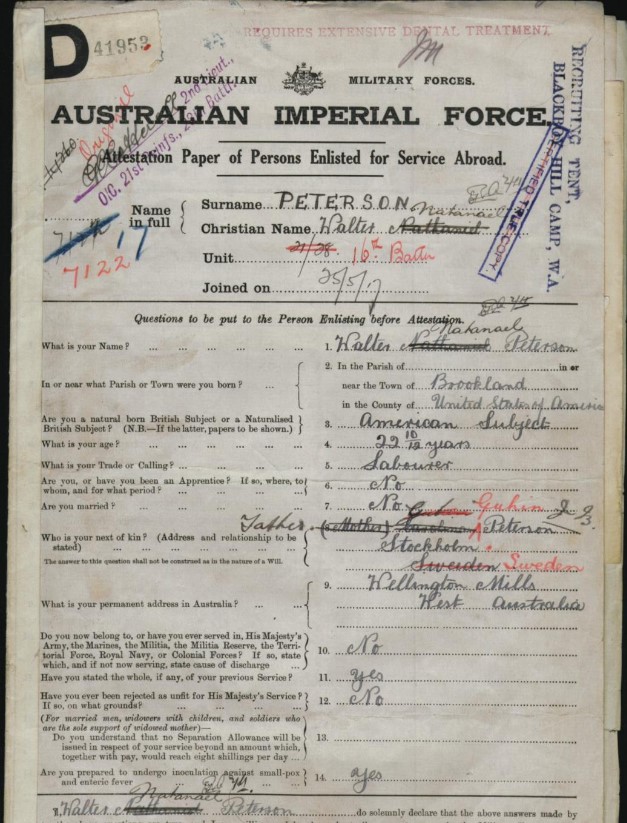 REQUIRES EXTENSIVE DENTAL TREATMENT
D 41953
AUSTRALIAN MILITARY FORCES.
AUSTRALIAN IMPERIAL FORCE.
RECRUITING TENT,
BLACKBOY HILL CAMP, W.A.
CERTIFIED TRUE COPY.
Original
2nd Lieut.,
O/C. 21st Reinfs., 28th Battn.
Attestation Paper of Persons Enlisted for Service Abroad.
7122
Name in full
Surname PETERSON
Natanael
Christian Name Walter Nathaniel
Unit 21/28. 16th Battn
Joined on 25/5/17
Questions to be put to the Person Enlisting before Attestation.
Natanael
What is your Name? ... 1. Walter Nathaniel Peterson
2. In the Parish of in or
In or near what Parish or Town were you born? ... near the Town of Brookland
in the County of United States of America
Are you a natural born British Subject or a Naturalised British Subject? (N.B.—If the latter, papers to be shown.) 3. American Subject
What is your age? ... 4. 22 10/12 years
What is your Trade or Calling? ... 5. Labourer
Are you, or have you been an Apprentice? If so, where, to whom, and for what period? ... 6. No
Are you married? ... 7. No
Father (Mother) Peterson
Who is your next of kin? (Address and relationship to be stated) Stockholm
The answer to this question shall not be construed as in the nature of a Will. Sweden Sweden
9. Wellington Mills
What is your permanent address in Australia? ... West Australia
Do you now belong to, or have you ever served in, His Majesty's Army, the Marines, the Militia, the Militia Reserve, the Territorial Force, Royal Navy, or Colonial Forces? If so, state which, and if not now serving, state cause of discharge ... 10. No
Have you stated the whole, if any, of your previous Service? 11. yes
Have you ever been rejected as unfit for His Majesty's Service? If so, on what grounds? ... 12. No
(For married men, widowers with children, and soldiers who are the sole support of widowed mother)—
Do you understand that no Separation Allowance will be issued in respect of your service beyond an amount which, together with pay, would reach eight shillings per day ... 13.
Are you prepared to undergo inoculation against small-pox and enteric fever ... 14. yes
Natanael
I, Walter Nathaniel Peterson do solemnly declare that the above answers made by